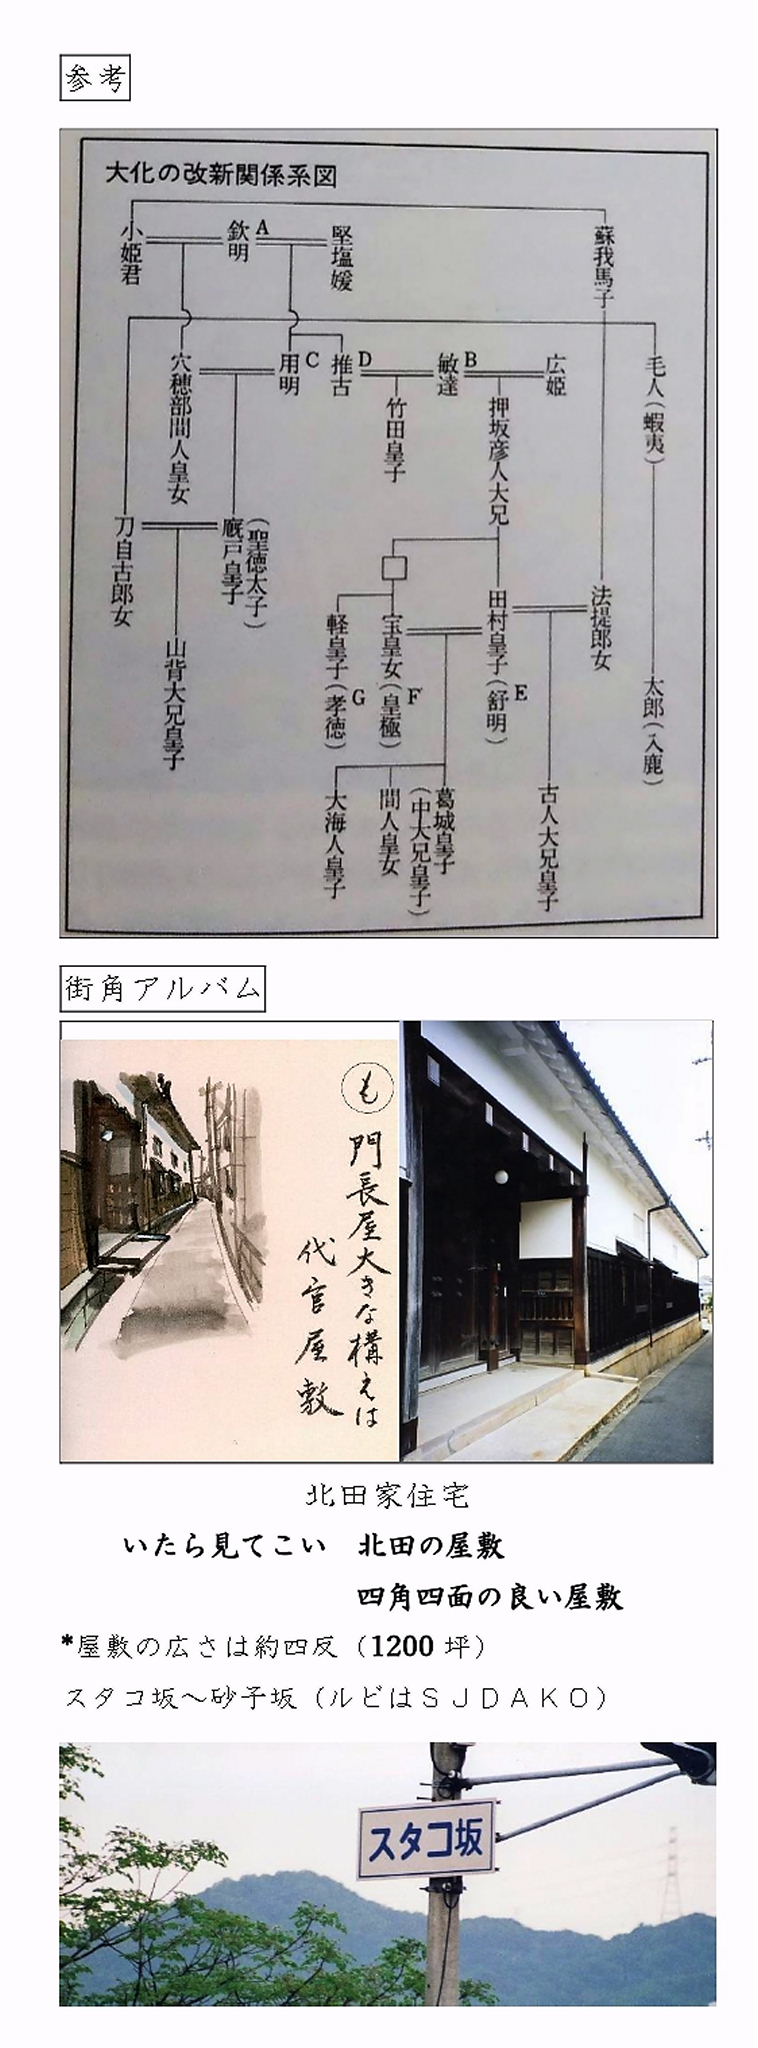 参考
大化の改新関係系図
小姫君
欽明
A
堅塩媛
蘇我馬子
穴穂部間人皇女
用明
C
推古
D
敏達
B
広姫
毛人(蝦夷)
竹田皇子
押坂彦人大兄
刀自古郎女
厩戸皇子
(聖徳太子)
山背大兄皇子
軽皇子(孝徳)
G
宝皇女(皇極)
F
田村皇子(舒明)
E
法提郎女
太郎(入鹿)
大海人皇子
間人皇女
葛城皇子
(中大兄皇子)
古人大兄皇子
街角アルバム
も
門長屋大きな構えは
代官屋敷
北田家住宅
いたら見てこい　北田の屋敷
四角四面の良い屋敷
*屋敷の広さは約四反（1200 坪）
スタコ坂～砂子坂（ルビはＳＪＤＡＫＯ）
スタコ坂